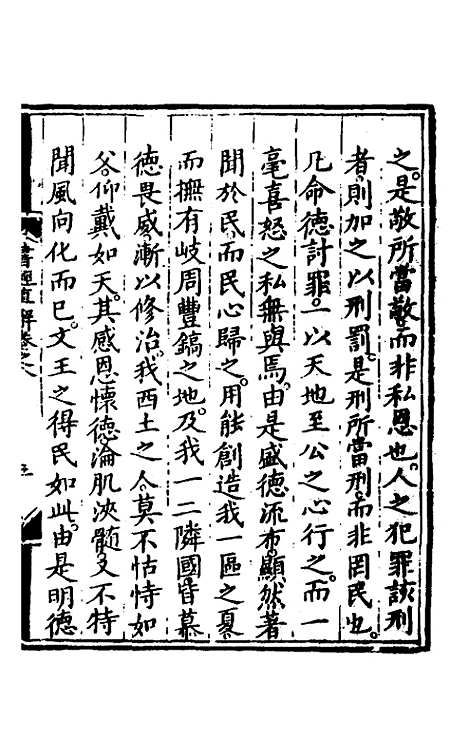 之是敬所當敬而非私恩也人之犯罪該刑
者則加之以刑罰是刑所當刑而非罔民也
凡命德討罪一以天地至公之心行之而一
毫喜怒之私無與焉由是盛德流布顯然著
聞於民而民心歸之用能創造我一區之夏
而撫有岐周豐鎬之地及我一二隣國皆慕
德畏威漸以修治我西土之人莫不怙恃如
父仰戴如天其感恩懷德淪肌浹髓又不特
聞風向化而已文王之得民如此由是明德
書經直解卷之八